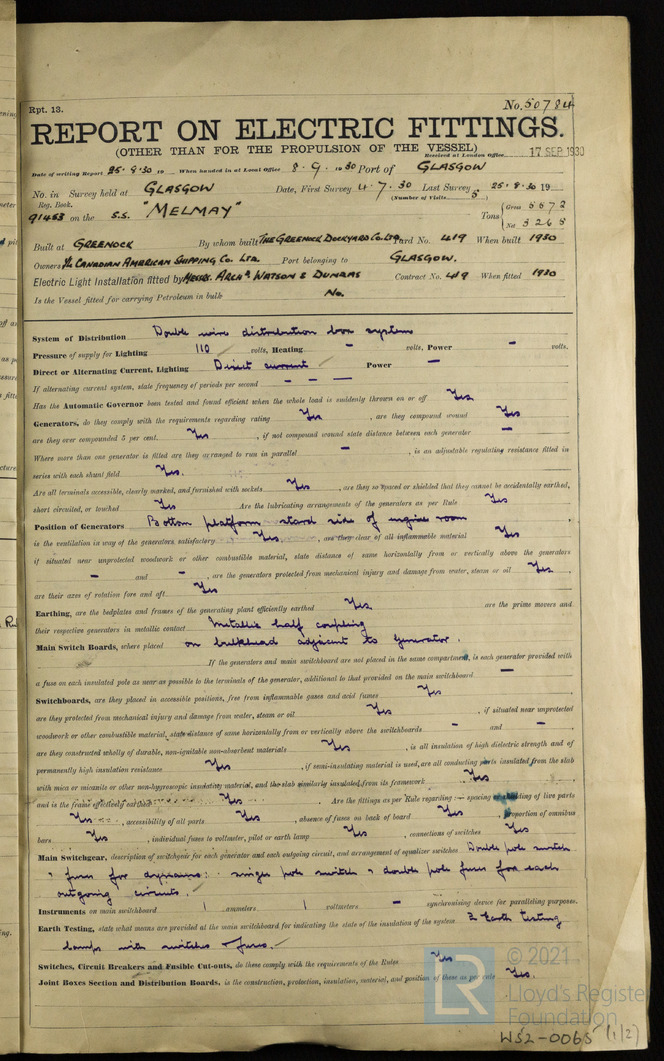 Rpt. 13.
No. 50784
REPORT ON ELECTRIC FITTINGS.
(OTHER THAN FOR THE PROPULSION OF THE VESSEL)
Received at London Office 17 SEP 1930
Date of writing Report 25.8.30 19 When handed in at Local Office 8-9-1930 Port of GLASGOW
No. in Survey held at GLASGOW Date, First Survey 4.7.30 Last Survey 25.8.30 19
Reg. Book. (Number of Visits 5
91453 on the S.S. "MELMAY" Tons { Gross 5572
Net 3265
Built at GREENOCK By whom built THE GREENOCK DOCKYARD CO. LTD. Yard No. 419 When built 1930
Owners THE CANADIAN AMERICAN SHIPPING CO. LTD. Port belonging to GLASGOW.
Electric Light Installation fitted by MESSRS. ARCHD WATSON & DUNBAS Contract No. 419 When fitted 1930
Is the Vessel fitted for carrying Petroleum in bulk No.
System of Distribution Double wire distribution box system
Pressure of supply for Lighting 110 volts, Heating - volts, Power - volts.
Direct or Alternating Current, Lighting Direct current Power -
If alternating current system, state frequency of periods per second - - -
Has the Automatic Governor been tested and found efficient when the whole load is suddenly thrown on or off Yes
Generators, do they comply with the requirements regarding rating Yes, are they compound wound Yes
are they over compounded 5 per cent. Yes, if not compound wound state distance between each generator -
Where more than one generator is fitted are they arranged to run in parallel -, is an adjustable regulating resistance fitted in
series with each shunt field Yes.
Are all terminals accessible, clearly marked, and furnished with sockets Yes, are they so spaced or shielded that they cannot be accidentally earthed,
short circuited, or touched Yes Are the lubricating arrangements of the generators as per Rule Yes
Position of Generators Bottom platform stard side of engine room
is the ventilation in way of the generators satisfactory Yes, are they clear of all inflammable material Yes
if situated near unprotected woodwork or other combustible material, state distance of same horizontally from or vertically above the generators
- and -, are the generators protected from mechanical injury and damage from water, steam or oil Yes
are their axes of rotation fore and aft Yes
Earthing, are the bedplates and frames of the generating plant efficiently earthed Yes are the prime movers and
their respective generators in metallic contact Metallic half coupling
Main Switch Boards, where placed on bulkhead adjacent to generator.
If the generators and main switchboard are not placed in the same compartment, is each generator provided with
a fuse on each insulated pole as near as possible to the terminals of the generator, additional to that provided on the main switchboard -
Switchboards, are they placed in accessible positions, free from inflammable gases and acid fumes Yes
are they protected from mechanical injury and damage from water, steam or oil Yes, if situated near unprotected
woodwork or other combustible material, state distance of same horizontally from or vertically above the switchboards - and -
are they constructed wholly of durable, non-ignitable non-absorbent materials Yes, is all insulation of high dielectric strength and of
permanently high insulation resistance Yes, if semi-insulating material is used, are all conducting parts insulated from the slab
with mica or micanite or other non-hygroscopic insulating material, and the slab similarly insulated from its framework Yes
and is the frame effectively earthed Yes. Are the fittings as per Rule regarding:- spacing or shielding of live parts
Yes, accessibility of all parts Yes, absence of fuses on back of board Yes, proportion of omnibus
bars Yes, individual fuses to voltmeter, pilot or earth lamp Yes, connections of switches Yes
Main Switchgear, description of switchgear for each generator and each outgoing circuit, and arrangement of equalizer switches Double pole switch
& fuses for dynamo: single pole switch & double pole fuses for each
outgoing circuits.
Instruments on main switchboard 1 ammeters 1 voltmeters - synchronising device for paralleling purposes.
Earth Testing, state what means are provided at the main switchboard for indicating the state of the insulation of the system 2 Earth testing
lamps with switches & fuses.
Switches, Circuit Breakers and Fusible Cut-outs, do these comply with the requirements of the Rules Yes
Joint Boxes Section and Distribution Boards, is the construction, protection, insulation, material, and position of these as per rule Yes.
© 2021
LR Lloyd's Register
Foundation
W52-0065 (1/2)